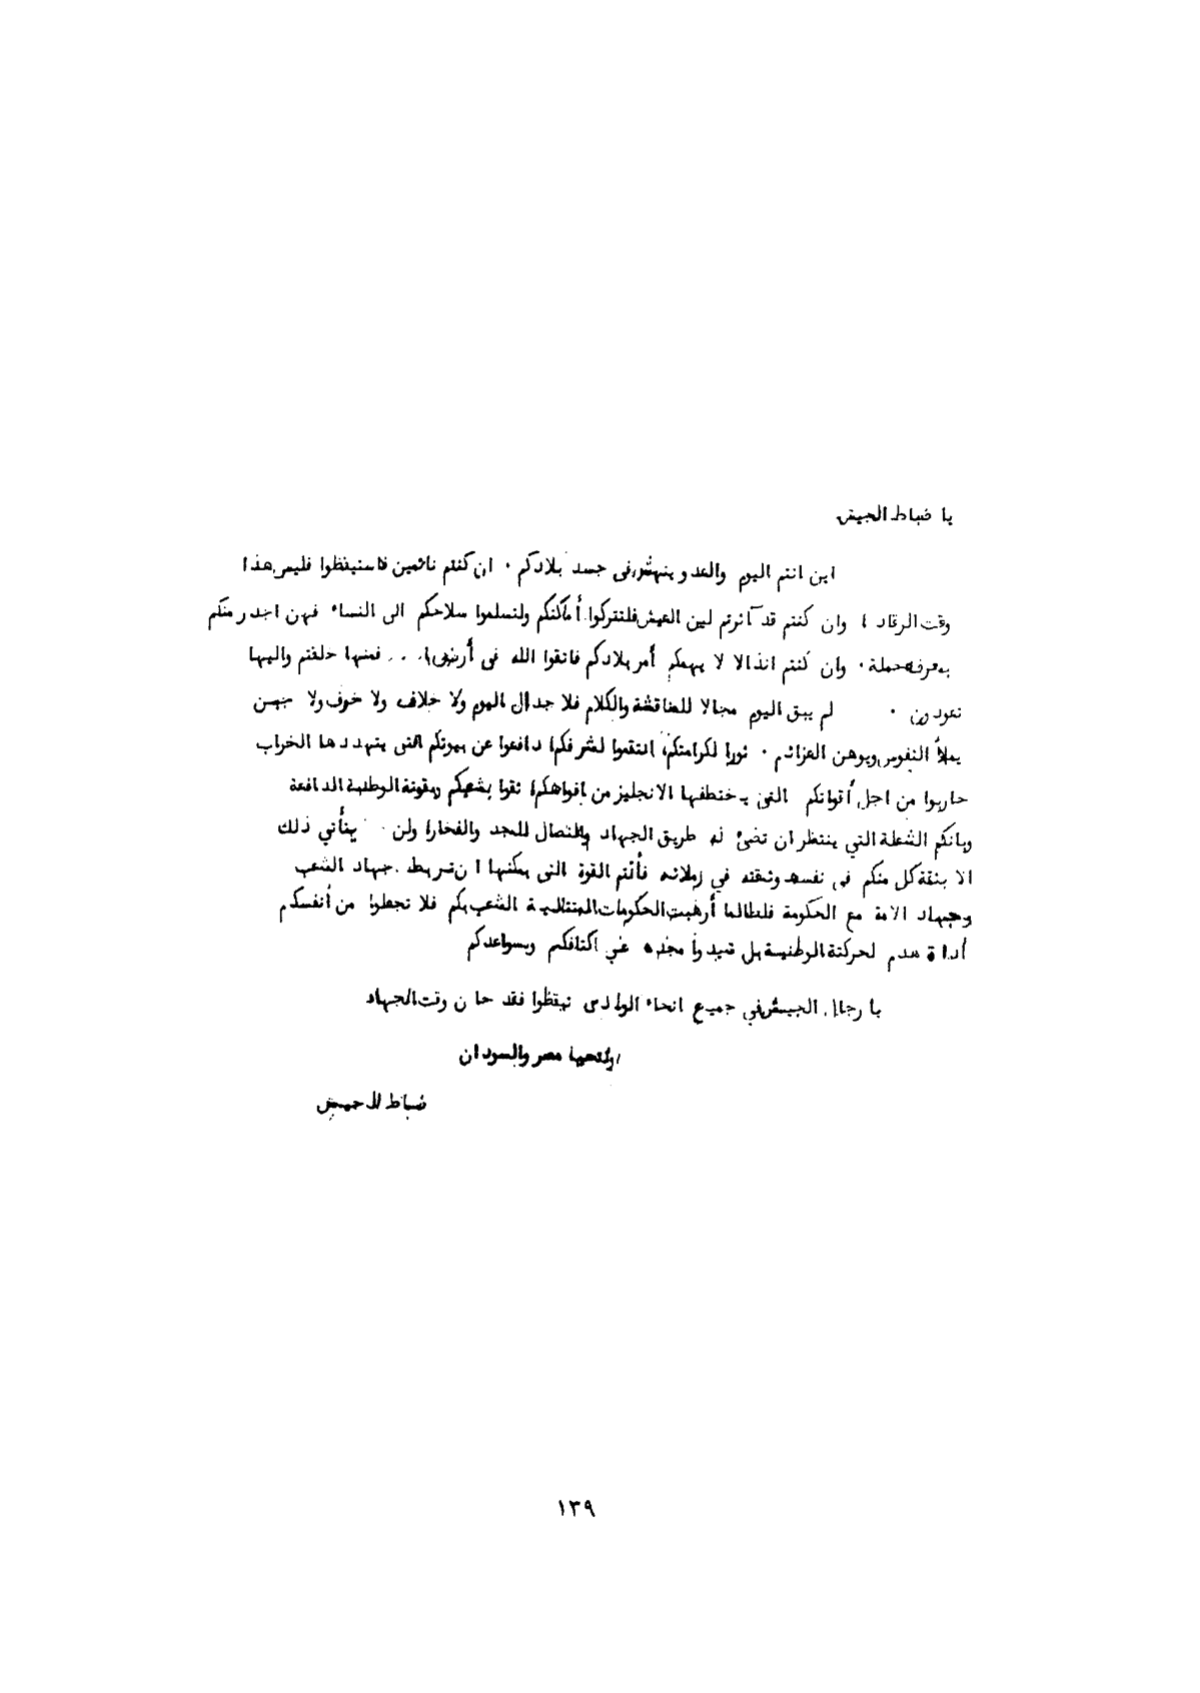 يا ضباط الجيش
اين انتم اليوم والعدو ينهش فى جسد بلادكم . ان كنتم نائمين فاستيقظوا فليس هذا
وقت الرقاد ، وان كنتم قد آثرتم لين العيش فلتتركوا أماكنكم ولتسلموا سلاحكم الى النساء فهن اجدر منكم
بمعرفة حمله . وان كنتم انذالا لا يهمكم أمر بلادكم فاتقوا الله فى أرضه ... فمنها خلقتم واليها
تعودون . لم يبق اليوم مجالا للمناقشة والكلام فلا جدال اليوم ولا خلاف ولا خوف ولا جبن
يملأ النفوس ويوهن العزائم . ثورا لكرامتكم، انتقموا لشرفكم، دافعوا عن بيوتكم التى يتهددها الخراب
حاربوا من اجل أقواتكم التى يختطفها الانجليز من افواهكم، ثقوا بشعبكم وبقوته الوطنية الدافعة
وبانكم الشعلة التي ينتظر ان تضئ له طريق الجهاد والنضال للمجد والفخار، ولن يتأتي ذلك
الا بثقة كل منكم فى نفسه وثقته في زملائه فأنتم القوة التى يمكنها ان تربط جهاد الشعب
وجهاد الامة مع الحكومة فلطالما أرهبت الحكومات المتتالية الشعب بكم فلا تجعلوا من أنفسكم
أداة هدم لحركته الوطنية بل شيدوا مجده على اكتافكم وبسواعدكم
يا رجال الجيش في جميع انحاء الوادى تيقظوا فقد حان وقت الجهاد
ولتحيا مصر والسودان
ضباط الجيش
١٣٩